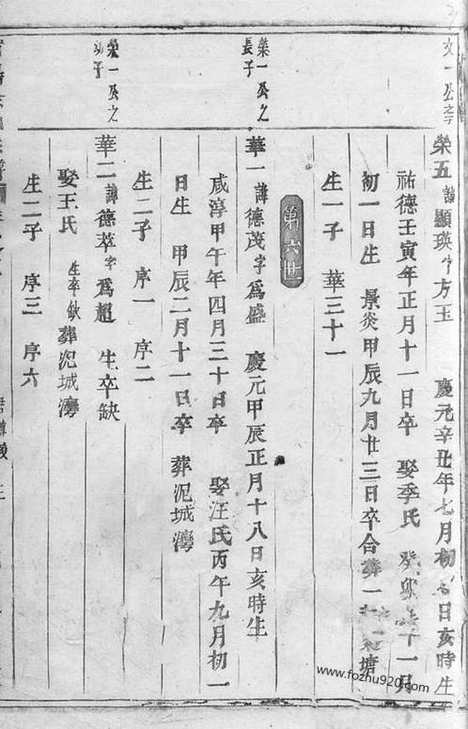 文一公之子
榮五 諱顯瑛字方玉 慶元辛丑年七月初 日亥時生
祐德壬寅年正月十一日卒 娶季氏 癸 十一月
初一日生 景炎甲辰九月廿三日卒合葬一 塘
生一子 華三十一
第六世
榮一公之長子
華一 諱德茂字爲盛 慶元甲辰正月十八日亥時生
咸淳甲午年四月三十日卒 娶汪氏丙午九月初一
日生 甲辰二月十一日卒 葬泥城灣
生二子 序一 序二
榮一公之幼子
華二 諱德萃字爲超 生卒缺
娶王氏 生卒缺 葬泥城灣
生二子 序三 序六
www.fozhu920.com